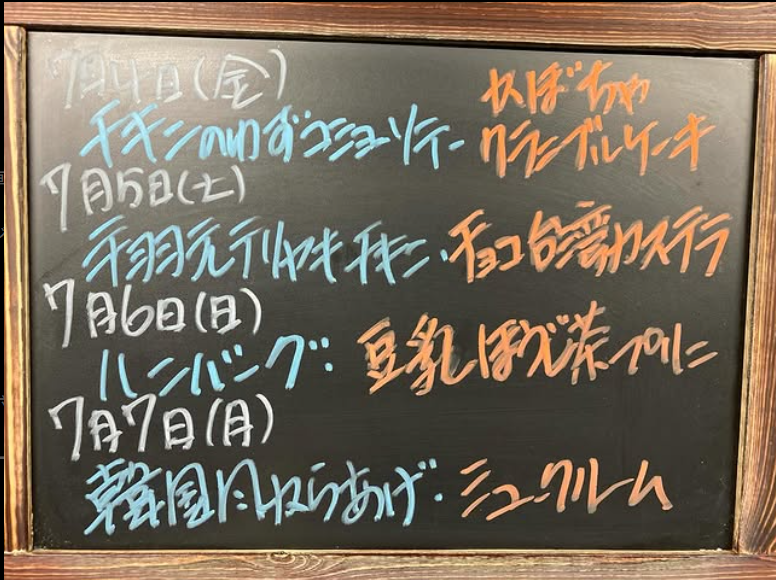 7月4日(金)
かぼちゃ
チキンのゆずコショウソテー クランブルケーキ
7月5日(土)
手羽元テリヤキチキン・チョコ台湾カステラ
7月6日(日)
ハンバーグ・豆乳ほうじ茶プリン
7月7日(月)
韓国風からあげ・シュークリーム